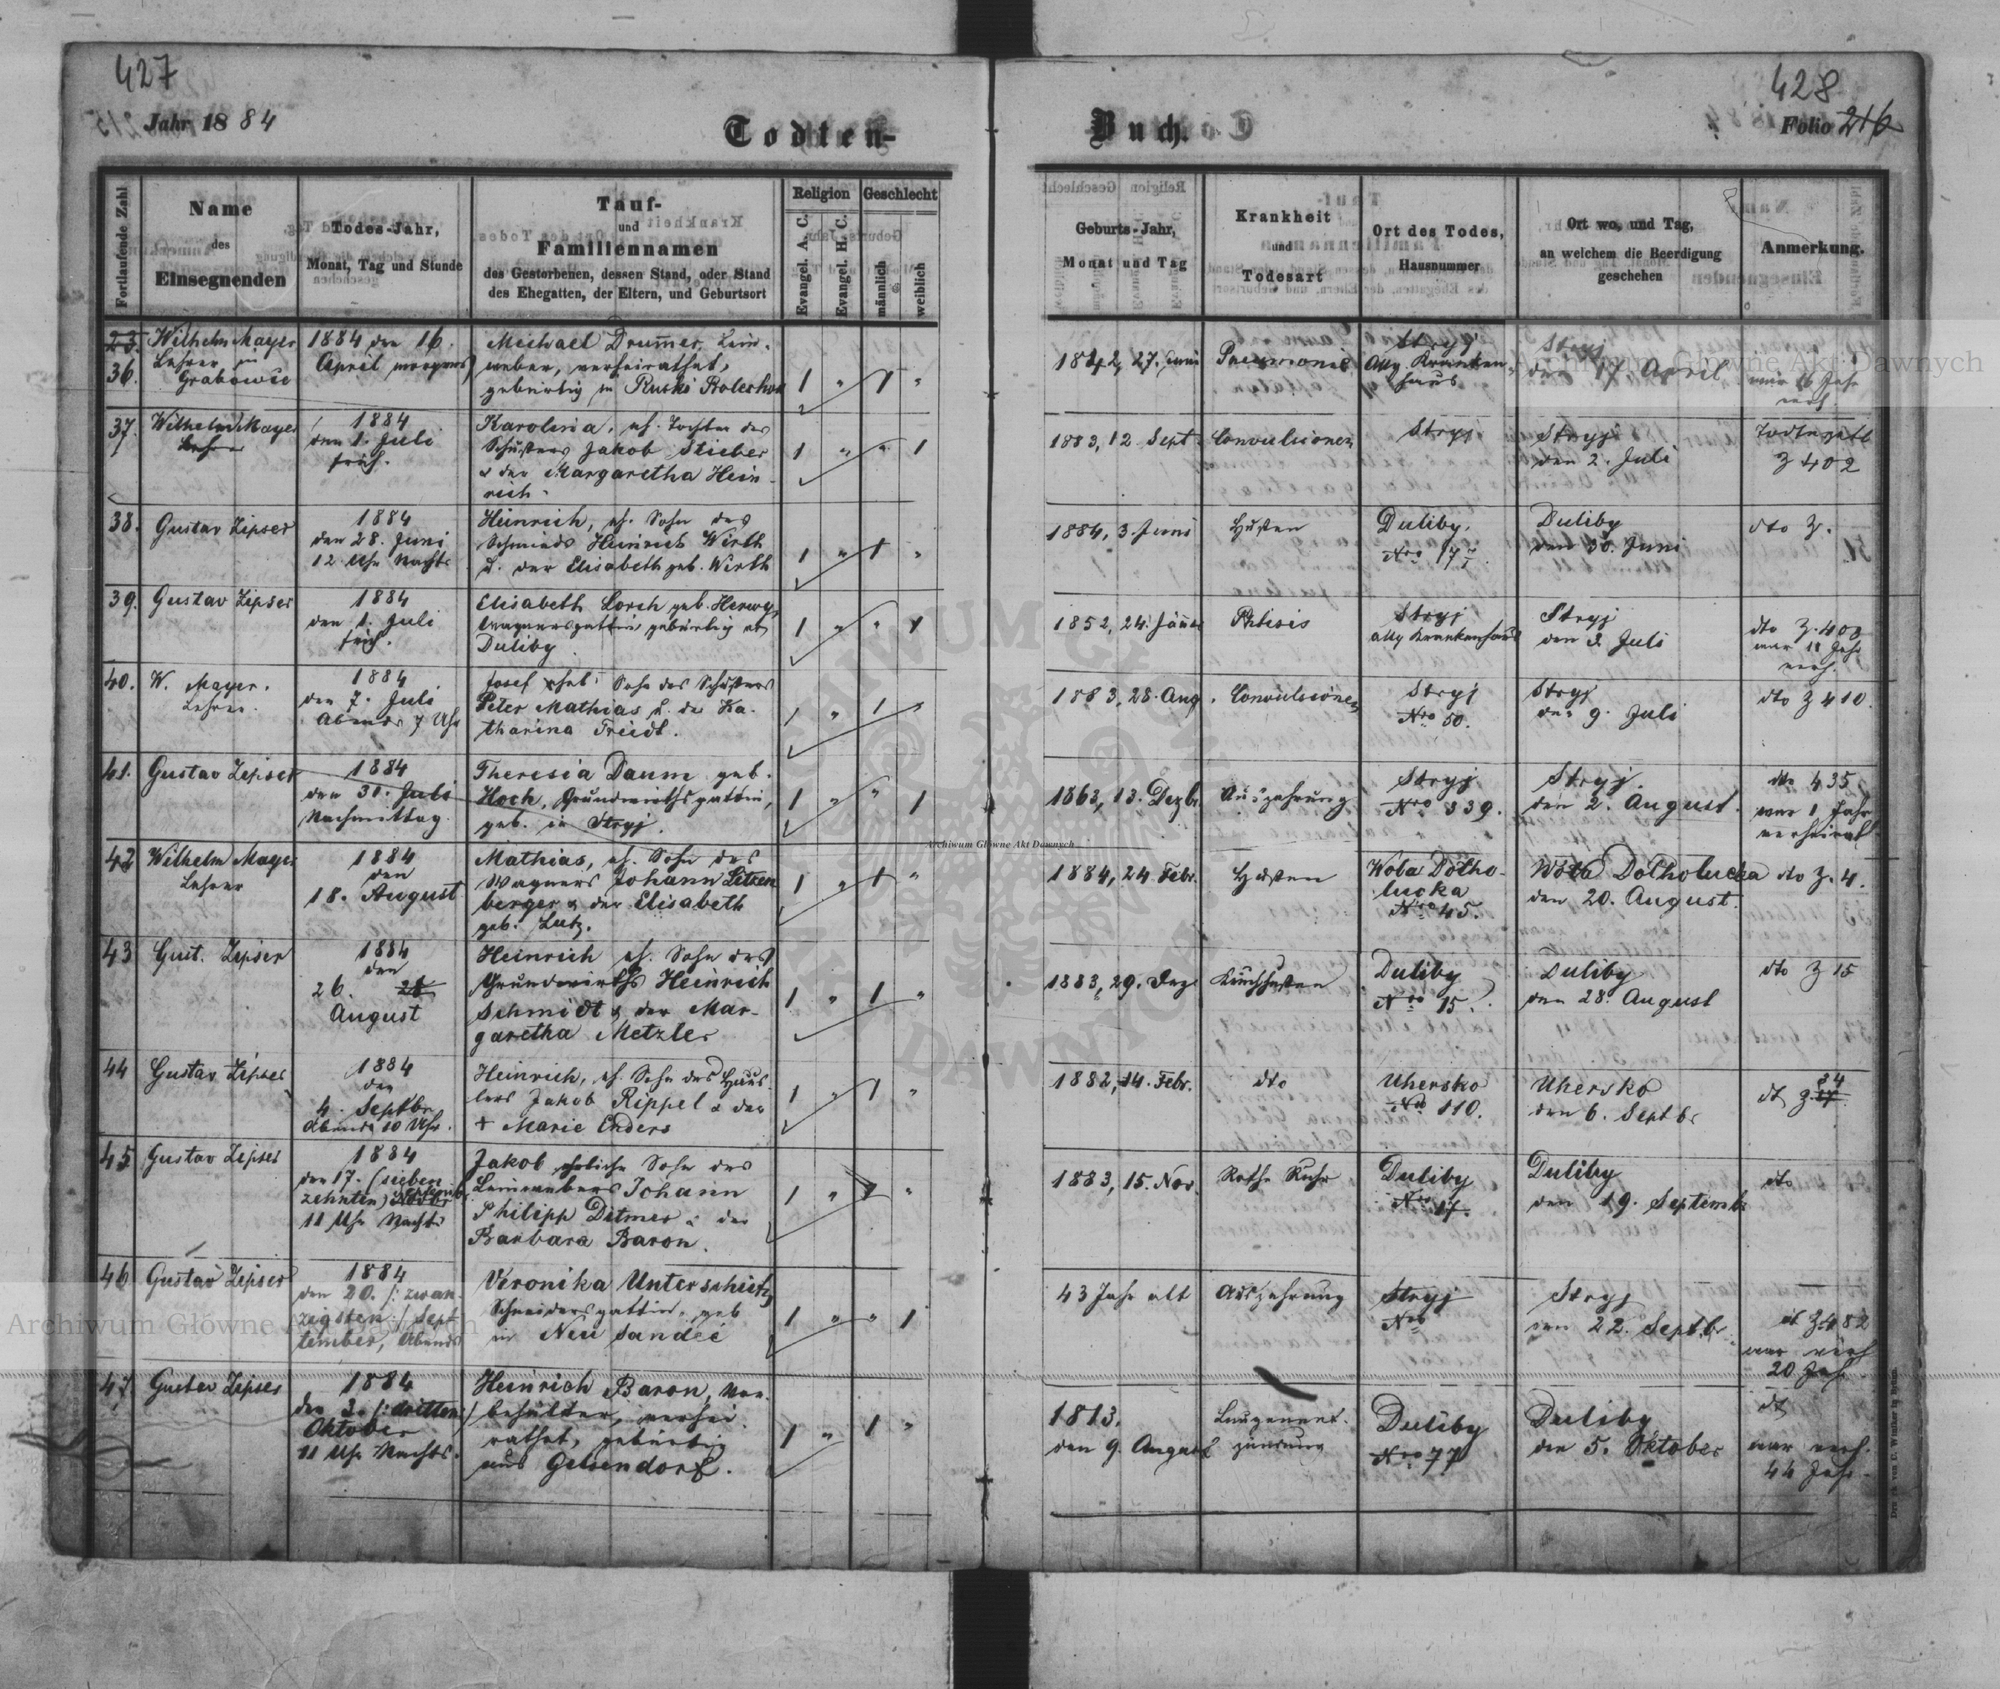 427
428
Jahr 1884
Todten-
Buch.
Folio 216
Fortlaufende Zahl
Name
des
Einsegnenden
Todes-Jahr,
Monat, Tag und Stunde
Tauf-
und
Familiennamen
des Gestorbenen, dessen Stand, oder Stand
des Ehegatten, der Eltern, und Geburtsort
Religion
Evangel. A. C.
Evangel. H. C.
Geschlecht
männlich
weiblich
Geburts-Jahr,
Monat und Tag
Krankheit
und
Todesart
Ort des Todes,
Hausnummer
Ort wo, und Tag,
an welchem die Beerdigung
geschehen
Anmerkung.
23.
36.
Wilhelm Mayer
Lehrer in
1884 den 16.
April morgens
Michael Drummer, Lein-
weber, verheirathet,
gebürtig in Ruski
1 " 1 "
27. Juni
Pneumonie
Stryj
Allg. Kranken-
haus
Stryj
den 17 April
war 16 Jahr
verh.
37.
Wilhelm Mayer
Lehrer
1884
den 1. Juli
früh.
Karolina, eh. Tochter des
Schusters Jakob Stieber
u der Margaretha Hein-
rich.
1 " " 1
1883, 12 Sept.
Convulsionen
Stryj
Stryj
den 2. Juli
Z 402
38.
Gustav Zipser
1884
den 28. Juni
12 Uhr Nachts
Heinrich, eh. Sohn des
Schmieds Heinrich Wirth
u. der Elisabeth geb. Wirth
1 " 1 "
1884, 3. Juni
Husten
Duliby.
Nro 17
Duliby
den 30. Juni
dto Z.
39.
Gustav Zipser
1884
den 1. Juli
früh.
Elisabeth Lorch geb. Herwy,
Wagnersgattin gebürtig
Duliby.
1 " " 1
1852, 24. Jänner
Phtisis
Stryj
allg Krankenhaus
Stryj
den 3. Juli
dto Z.
war 11 Jahr
verh.
40.
W. Mayer.
Lehrer.
1884
den 7. Juli
Abends 7 Uhr
Josef ehel. Sohn des Schusters
Peter Mathias u. der Ka-
tharina Freidt.
1 " 1 "
1883, 28. Aug.
Convulsionen
Stryj
Nro 50.
Stryj
den 9. Juli
dto Z 410.
41.
Gustav Zipser
1884
den 31. Juli
Nachmittag.
Theresia Daum geb.
Hoch, Grundwirthsgattin,
geb. in Stryj.
1 " " 1
1863, 13. Dezbr.
Auszehrung
Stryj
Nro 339.
Stryj
den 2. August.
dto 435
war 1 Jahr
verheirat.
42
Wilhelm Mayer
Lehrer
1884
den
18. August
Mathias, eh. Sohn des
Wagners Johann Litzen
berger u der Elisabeth
geb. Lutz.
1 " 1 "
1884, 24. Febr.
Husten
Woba Dotho-
lucka
Nro 45.
Wola Dolholucka
den 20. August.
dto Z. 4.
43
Gust. Zipser
1884
den
26. 28
August
Heinrich eh. Sohn des
Grundwirths Heinrich
Schmidt u der Mar-
garetha Metzler
1 " 1 "
1883, 29. Dez.
Keuchhusten
Duliby
Nro 15.
Duliby
den 28. August
dto Z 15
44
Gustav Zipser
1884
den
4. Septbr.
Abends 10 Uhr.
Heinrich, eh. Sohn des Häus-
lers Jakob Rippel u der
+ Marie Enders
1 " 1 "
1882, 14. Febr.
dto
Uhersko
Nro 110.
Uhersko
den 6. Septbr
34
45
Gustav Zipser
1884
den 17. (sieben
zehnten) Septemb.
11 Uhr Nachts
Jakob eheliche Sohn des
Leinwebers Johann
Philipp Ditmer u der
Barbara Baron.
1 " 1 "
1883, 15. Nov.
Rothe Ruhr
Duliby
Nro 17.
Duliby
den 19. Septemb.
dto
46
Gustav Zipser
1884
den 20. /: zwan-
zigsten :/ Sep-
tember, Abends
Veronika Unterschütz,
Schneidersgattin, geb
in Neu Sandec
1 " " 1
43 Jahr alt
Auszehrung
Stryj
Nro
Stryj
den 22. Septbr.
dt Z. 482
war verh
20 Jahr.
47.
Gustav Zipser
1884
den 3. /: dritten :/
Oktober
11 Uhr Nachts.
Heinrich Baron, Vor-
behälter, verhei-
rathet, gebürtig
aus Gelsendorf.
1 " 1 "
1813.
den 9. August
Lungenent-
zündung
Duliby
Nro 77
Duliby
den 5. Oktober
dt
war verh.
44 Jahr.
Archiwum Główne Akt Dawnych
Archiwum Główne Akt Dawnych
Archiwum Główne Akt Dawnych